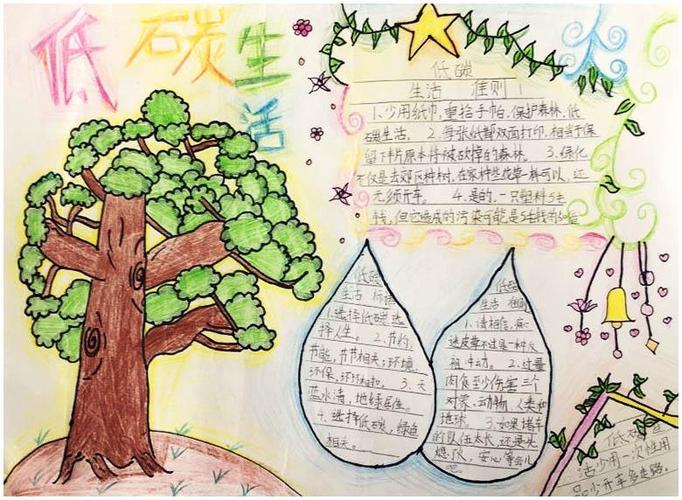 低碳生活
低碳
生活 准则1
1.少用纸巾,重拾手帕,保护森林,低
碳生活。 2.每张纸都双面打印,相当于保
留下半片原本将被砍掉的森林。 3.绿化
不仅是去郊区种树,在家种些花草一样可以,还
无须开车。 4.是的,一只塑料5毛
钱,但它造成的污染可能是5毛钱的50倍
低碳
生活 标语
1.选择低碳选
择人生。 2.节约
节能,节节相关;环境
环保,环环相扣。 3.天
蓝水清,地绿居佳。
4.选择低碳,绿色
相关。
低碳
生活 准则
1.请相信,
迷皮草不过是一种
祖冲动。 2.过量
肉食至少伤害三个
对象,动物,人类和
地球。 3.如果堵车
的队伍太长,还是先
熄火,安心等会儿
吧
低碳生
活少用一次性用
品少开车多走路。